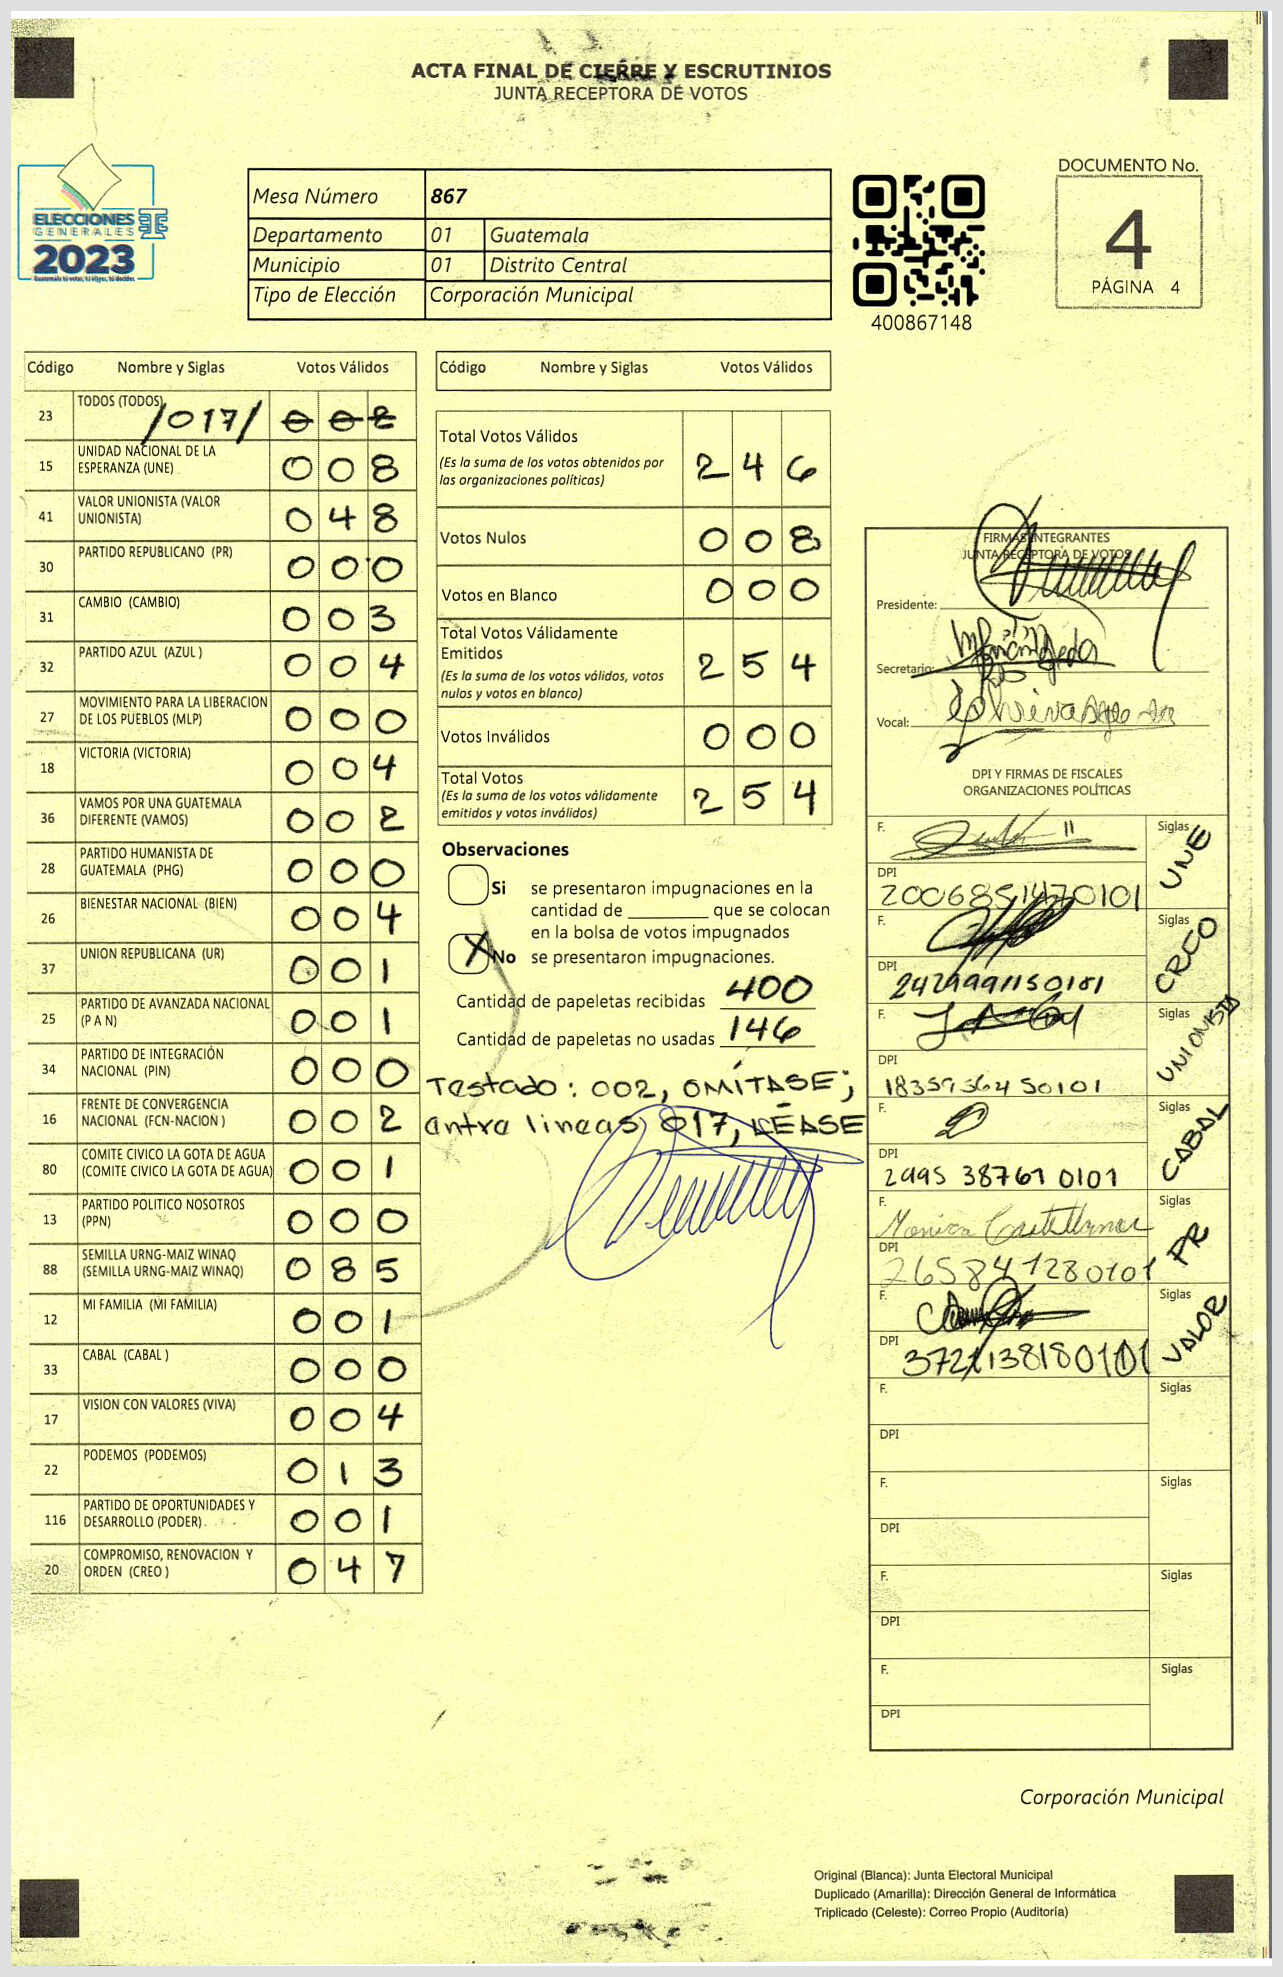 ACTA FINAL DE CIERRE Y ESCRUTINIOS
JUNTA RECEPTORA DE VOTOS
ELECCIONES
GENERALES
2023
Mesa Número 867
Departamento 01 Guatemala
Municipio 01 Distrito Central
Tipo de Elección Corporación Municipal
400867148
DOCUMENTO No.
4
PÁGINA 4
Código Nombre y Siglas Votos Válidos
23 TODOS (TODOS) /017/ 002
15 UNIDAD NACIONAL DE LA
ESPERANZA (UNE) 008
41 VALOR UNIONISTA (VALOR
UNIONISTA) 048
30 PARTIDO REPUBLICANO (PR) 000
31 CAMBIO (CAMBIO) 003
32 PARTIDO AZUL (AZUL ) 004
27 MOVIMIENTO PARA LA LIBERACION
DE LOS PUEBLOS (MLP) 000
18 VICTORIA (VICTORIA) 004
36 VAMOS POR UNA GUATEMALA
DIFERENTE (VAMOS) 002
28 PARTIDO HUMANISTA DE
GUATEMALA (PHG) 000
26 BIENESTAR NACIONAL (BIEN) 004
37 UNION REPUBLICANA (UR) 001
25 PARTIDO DE AVANZADA NACIONAL
(P A N) 001
34 PARTIDO DE INTEGRACIÓN
NACIONAL (PIN) 000
16 FRENTE DE CONVERGENCIA
NACIONAL (FCN-NACION ) 002
80 COMITE CIVICO LA GOTA DE AGUA
(COMITE CIVICO LA GOTA DE AGUA) 001
13 PARTIDO POLITICO NOSOTROS
(PPN) 000
88 SEMILLA URNG-MAIZ WINAQ
(SEMILLA URNG-MAIZ WINAQ) 085
12 MI FAMILIA (MI FAMILIA) 001
33 CABAL (CABAL ) 000
17 VISION CON VALORES (VIVA) 004
22 PODEMOS (PODEMOS) 013
116 PARTIDO DE OPORTUNIDADES Y
DESARROLLO (PODER) 001
20 COMPROMISO, RENOVACION Y
ORDEN (CREO ) 047
Código Nombre y Siglas Votos Válidos
Total Votos Válidos 246
(Es la suma de los votos obtenidos por
las organizaciones políticas)
Votos Nulos 008
Votos en Blanco 000
Total Votos Válidamente
Emitidos 254
(Es la suma de los votos válidos, votos
nulos y votos en blanco)
Votos Inválidos 000
Total Votos 254
(Es la suma de los votos válidamente
emitidos y votos inválidos)
Observaciones
Si se presentaron impugnaciones en la
cantidad de ________ que se colocan
en la bolsa de votos impugnados
X No se presentaron impugnaciones.
Cantidad de papeletas recibidas 400
Cantidad de papeletas no usadas 146
Testado: 002, OMÍTASE;
entre lineas 017, LÉASE
FIRMAS INTEGRANTES
JUNTA RECEPTORA DE VOTOS
Presidente:
Secretario:
Vocal:
DPI Y FIRMAS DE FISCALES
ORGANIZACIONES POLÍTICAS
F. Siglas UNE
DPI
2006851470101
F. Siglas CREO
DPI
F. Siglas UNIONISTA
DPI
1835956450101
F. Siglas CABAL
DPI
2995 38761 0101
F. Siglas PR
Monica Castellanos
DPI
2658471280101
F. Siglas VALOR
DPI
F. Siglas
DPI
F. Siglas
DPI
F. Siglas
DPI
F. Siglas
DPI
Corporación Municipal
Original (Blanca): Junta Electoral Municipal
Duplicado (Amarilla): Dirección General de Informática
Triplicado (Celeste): Correo Propio (Auditoría)